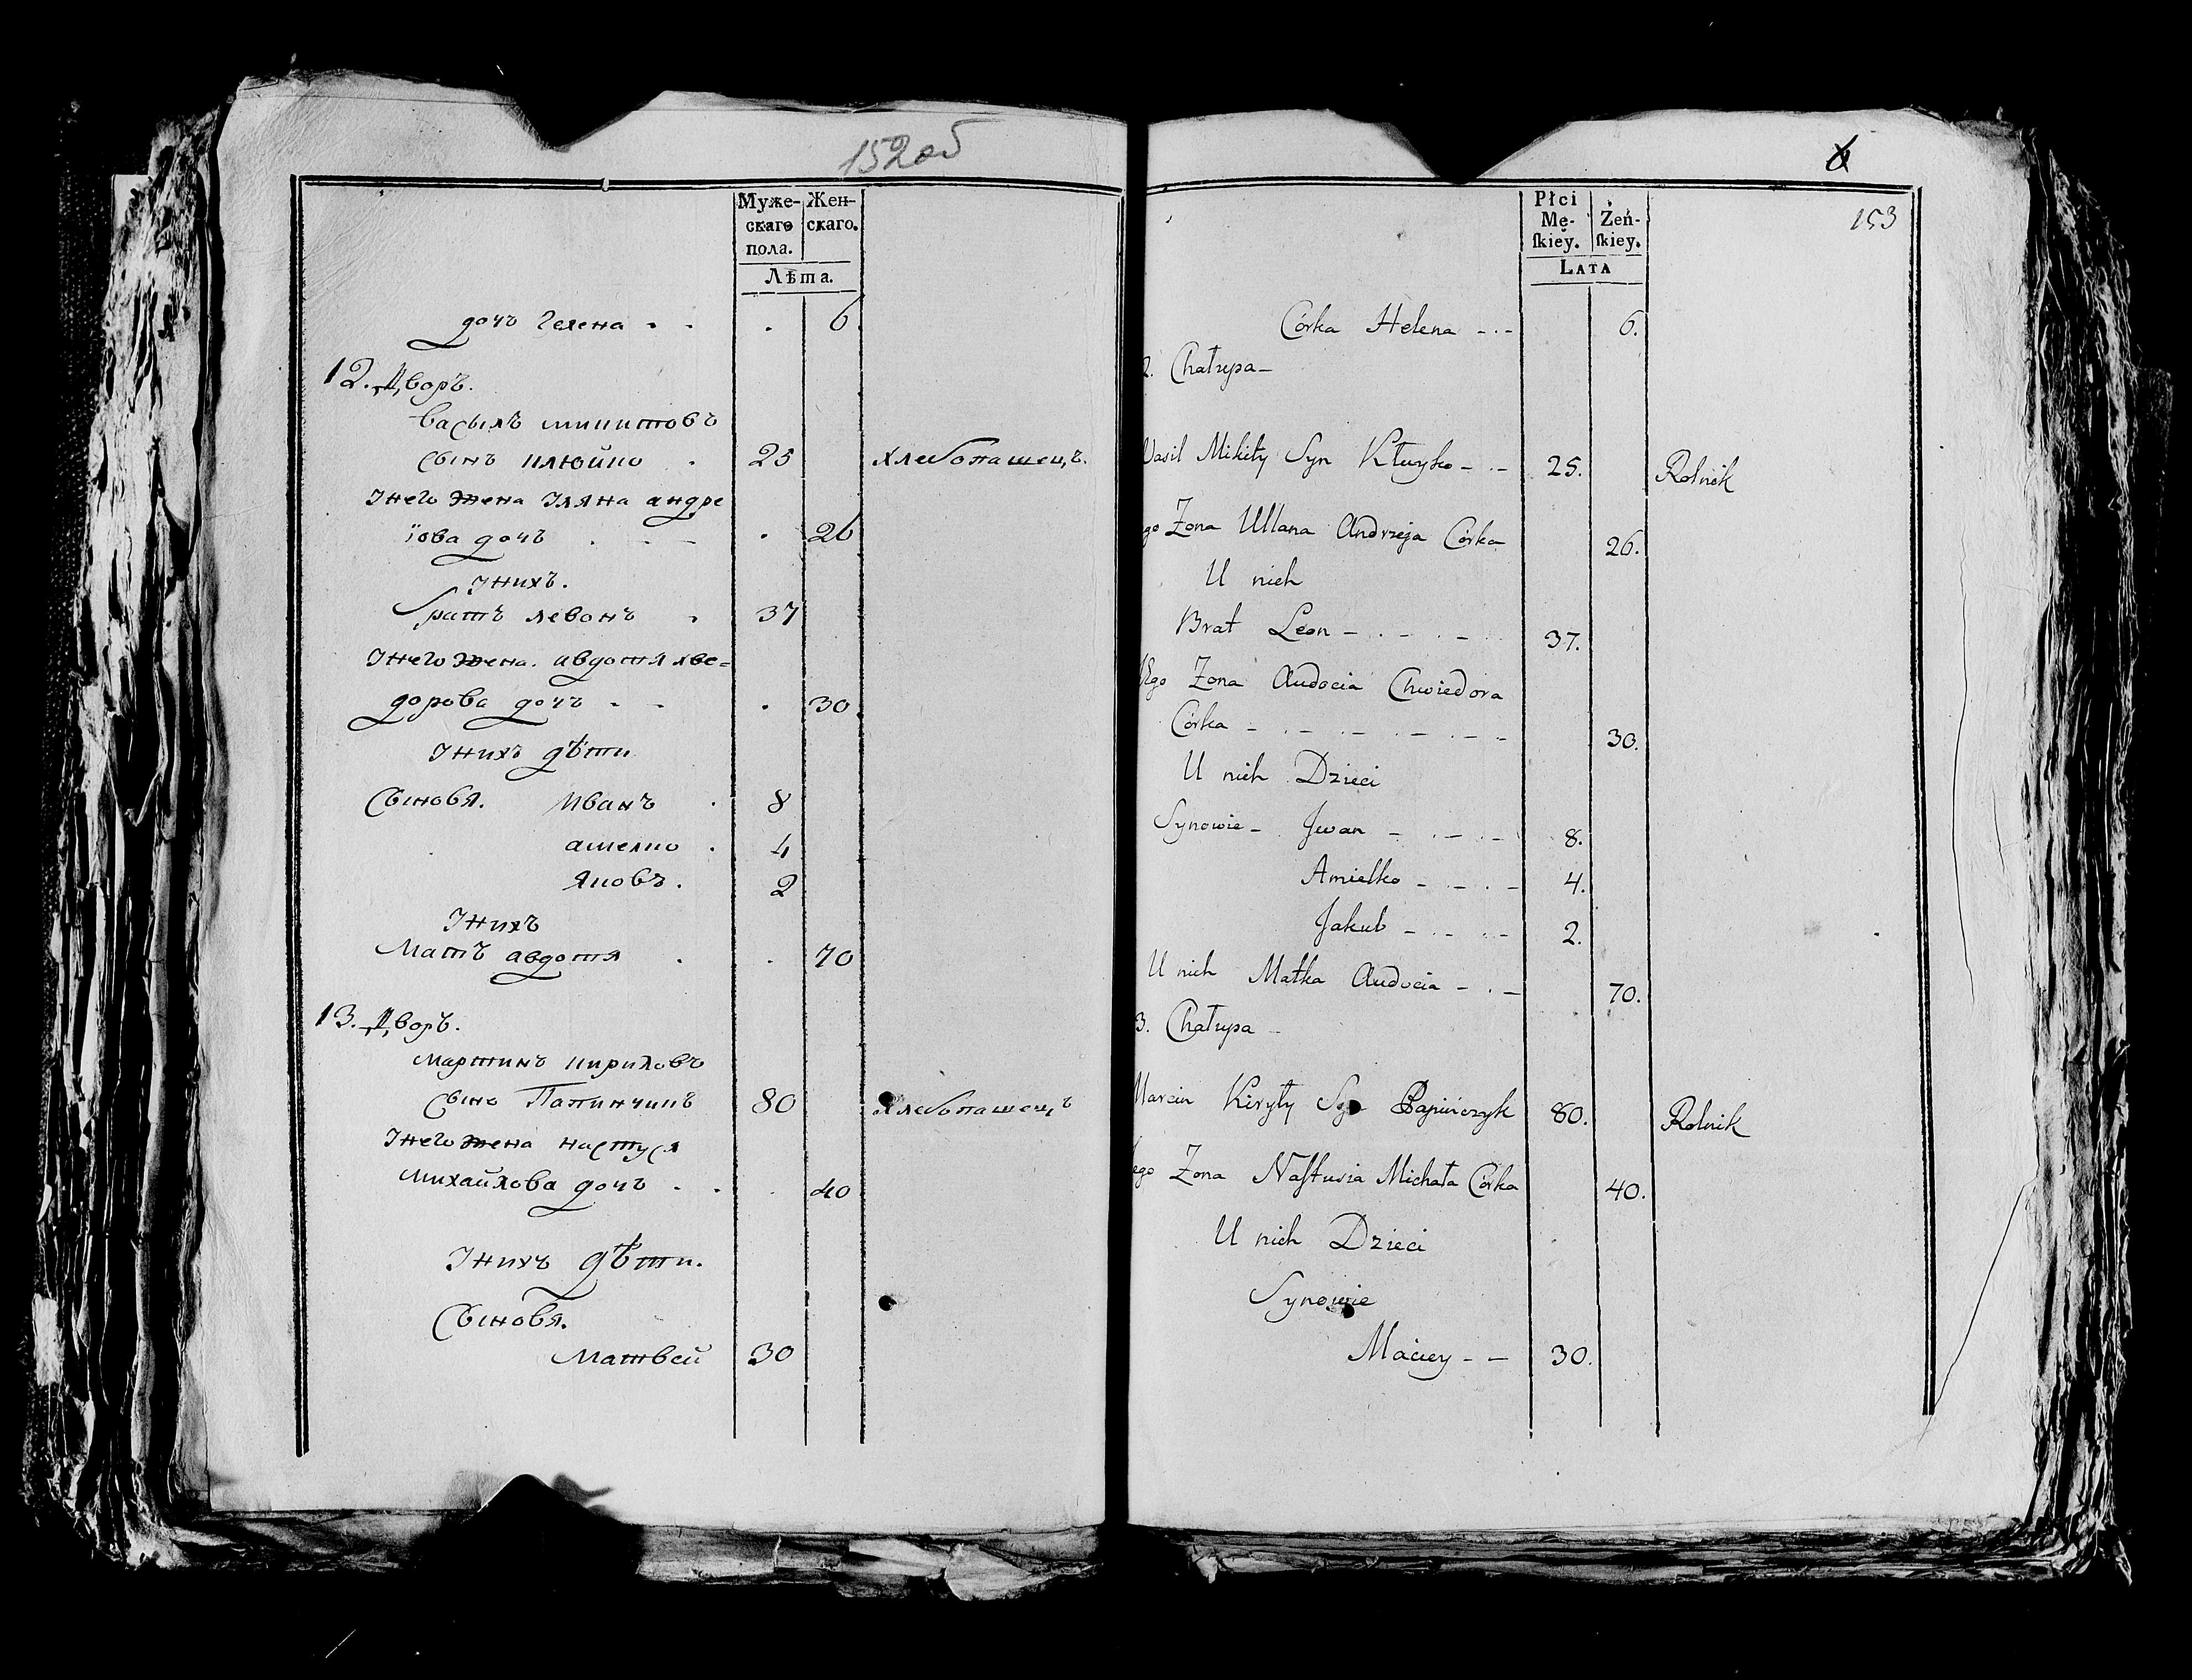 152 об
Муже-
скаго
пола.
Жен-
скаго.
Лѣта.
дочъ Гелена . . . 6.
12. Дворъ.
Васылъ микитовъ
сынъ клюйко . 25 хлебопашецъ.
Iнего жена Iляна андре
їова дочъ . - - . 26
Iнихъ.
братъ левонъ . 37
Iнего жена. авдотя хве=
дорова дочъ - - . 30.
Iнихъ дѣти
Сыновя. Иванъ . 8
амелко . 4
Яковъ. 2
Iнихъ
Матъ авдотя . . 70
13. Дворъ.
мартинъ кириловъ
сынъ Папинчикъ 80 хлебопашецъ
Iнего жена настуся
михайлова дочъ . . . 40
Iнихъ дѣти.
Сыновя.
Матвей 30
Płci
Mę-
ſkiey.
Żeń-
ſkiey.
LATA
153
Córka Helena - . - 6.
2. Chałupa -
Wasil Mikity Syn Kłuyko - . - 25. Rolnik
ego Żona Ullana Andrzeja Córka 26.
U nich
Brat Leon - . - . - 37.
Jego Żona Audocia Chwiedora
Córka - . - . - . - . - - 30.
U nich Dzieci
Synowie - Jwan - . - . - 8.
Amielko - . - . - 4.
Jakub - . - . - 2.
U nich Matka Audocia - . - 70.
3. Chałupa -
Marcin Kiryły Syn Papińczyk 80. Rolnik
ego Żona Naſtusia Michała Córka 40.
U nich Dzieci
Synowie
Maciey - - 30.